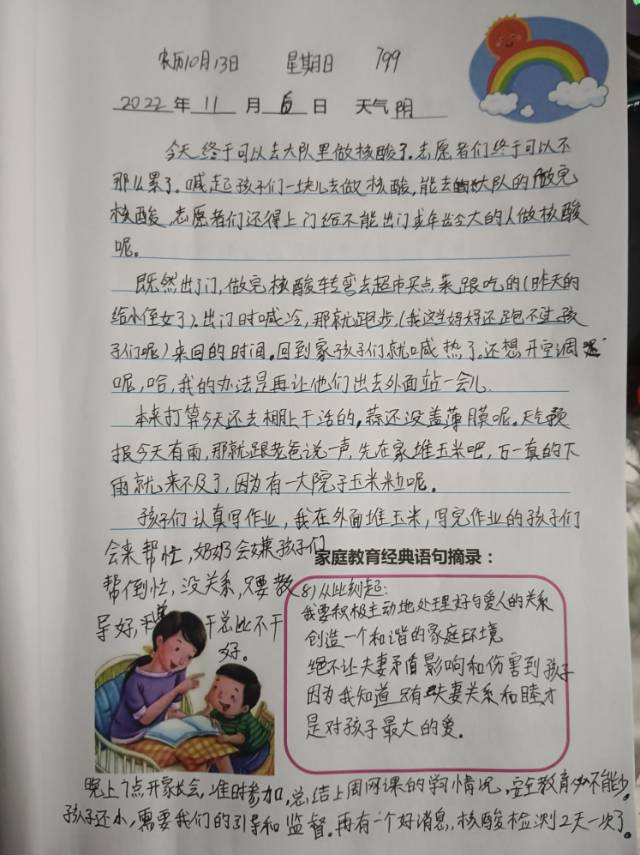 农历10月13日 星期日 799
2022年11月6日 天气 阴
今天终于可以去大队里做核酸了.志愿者们终于可以不
那么累了.喊起孩子们一块儿去做核酸,能去大队的做完
核酸,志愿者们还得上门给不能出门或年龄大的人做核酸
呢。
既然出了门,做完核酸转弯去超市买点菜跟吃的(昨天的
给小侄女了).出门时喊冷,那就跑步(我这好好还跑不过孩
子们呢)来回的时间.回到家孩子们就喊热了,还想开空调
呢,哈,我的办法是再让他们出去外面站一会儿.
本来打算今天还去棚上干活的,蒜还没盖薄膜呢。天气预
报今天有雨,那就跟老爸说一声,先在家堆玉米吧,万一真的下
雨就来不及了,因为有一大院子玉米粒呢。
孩子们认真写作业,我在外面堆玉米,写完作业的孩子们
会来帮忙,奶奶会嫌孩子们
帮倒忙,没关系,只要教
导好,干总比不干
好。
家庭教育经典语句摘录:
8)从此刻起:
我要积极主动地处理好与爱人的关系
创造一个和谐的家庭环境
绝不让夫妻矛盾影响和伤害到孩子
因为我知道只有夫妻关系和睦才
是对孩子最大的爱。
晚上7点开家长会,准时参加,总结上周网课的学习情况,安全教育必不能少.
孩子还小,需要我们的引导和监督.再有一个好消息,核酸检测2天一次了。